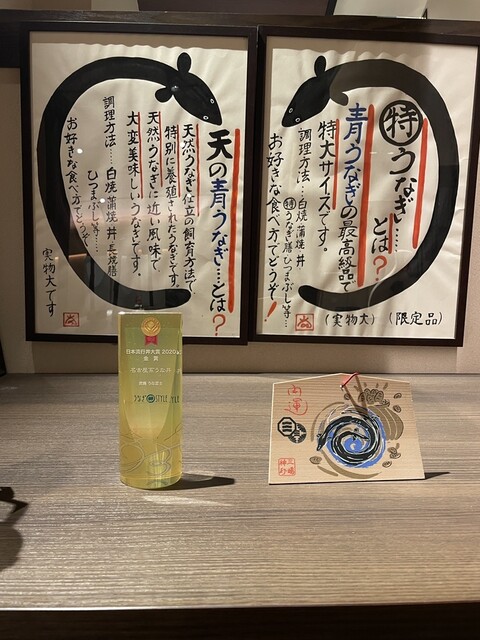 特うなぎ……とは?
青うなぎの最高級品で
特大サイズです。
調理方法…白焼 蒲焼 丼
特うなぎ膳 ひつまぶし等…
お好きな食べ方でどうぞ!
(実物大) (限定品)
天の青うなぎ…とは?
天然うなぎ仕立の飼育方法で
特別に養殖されたうなぎです。
天然うなぎに近い風味で
大変美味しいうなぎです
調理方法……白焼 蒲焼 丼 長焼膳
ひつまぶし等……
お好きな食べ方でどうぞ
実物大です
日本流行丼大賞 2020
金賞
STYLE